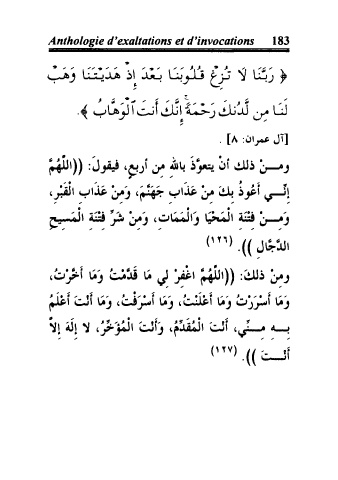 Anthologie d'exaltations et d'invocations 183
﴿ رَبَّنَا لَا تُزِغْ قُلُوبَنَا بَعْدَ إِذْ هَدَيْتَنَا وَهَبْ
لَنَا مِن لَّدُنكَ رَحْمَةً إِنَّكَ أَنتَ الْوَهَّابُ ﴾.
[آل عمران: ٨] .
ومـــنْ ذلك أنْ يتعوَّذَ بالله مِن أربعٍ، فيقولَ: ((اللَّهُمَّ
إنِّــي أَعُوذُ بِكَ مِنْ عَذَابِ جَهَنَّمَ، وَمِنْ عَذَابِ الْقَبْرِ،
وَمِــنْ فِتْنَةِ الْمَحْيَا وَالْمَمَاتِ، وَمِنْ شَرِّ فِتْنَةِ الْمَسِيحِ
الدَّجَّالِ )). (١٢٦)
ومِنْ ذلكَ: ((اللَّهُمَّ اغْفِرْ لِي مَا قَدَّمْتُ وَمَا أَخَّرْتُ،
وَمَا أَسْرَرْتُ وَمَا أَعْلَنْتُ، وَمَا أَسْرَفْتُ، وَمَا أَنْتَ أَعْلَمُ
بِــهِ مِــنِّي، أَنْتَ الْمُقَدِّمُ، وَأَنْتَ الْمُؤَخِّرُ، لا إِلَهَ إِلاَّ
أَنْــتَ )). (١٢٧)